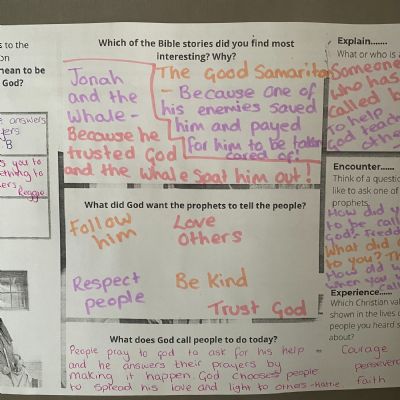 s to the
on
mean to be
God?
answers
B
s you to
ething to
ers Reggie
Which of the Bible stories did you find most
interesting? Why?
Jonah
and the
whale -
Because he
trusted God
and the whale spat him out!
The Good Samaritan
- Because one of
his enemies saved
him and payed
for him to be taken
cared of!
What did God want the prophets to tell the people?
Follow
him
Love
Others
Respect
people
Be Kind
Trust God
What does God call people to do today?
People pray to God to ask for his help -
and he answers their prayers by
making it happen. God chooses people
to spread his love and light to others - Hattie
Explain.......
What or who is a
Someone
who has
called b
To help
God teach
othe
Encounter......
Think of a question
like to ask one of
prophets
How did y
to be call
God?
What did
to you? Th
How did
when you
call
Experience......
Which Christian val
shown in the lives o
people you heard s
about?
Courage
persevera
faith